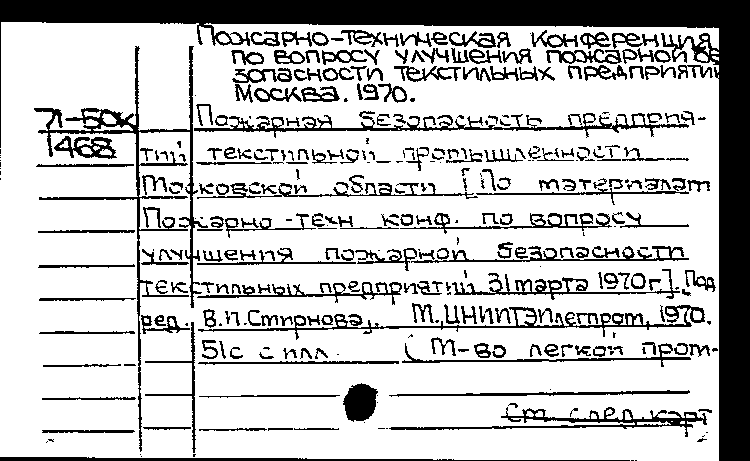 Пожарно-техническая конференция
по вопросу улучшения пожарной бе
зопасности текстильных предприятий
Москва. 1970.
71-50к Пожарная безопасность предприя-
1468 тий текстильной промышленности
Московской области [По материалам
Пожарно-техн конф. по вопросу
улучшения пожарной безопасности
текстильных предприятий 31 марта 1970г]. Под
ред. В.П.Смирнова,. М.,ЦНИИТЭИлегпром, 1970.
51с с илл. (М-во легкой пром-
См. след.карт